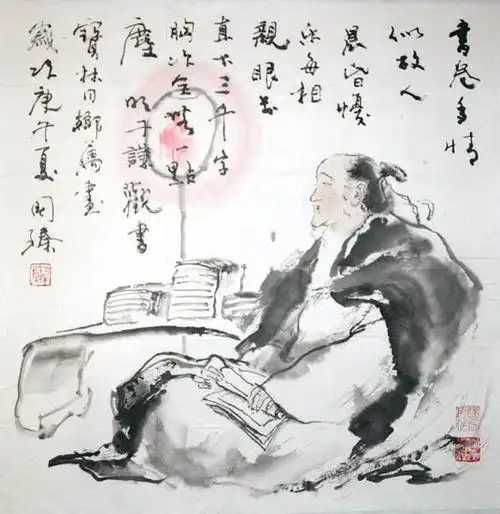 書卷多情
似故人
晨昏憂
樂每相
親眼前
直下三千字
胸次全無一點
塵 明于謙觀書
寶林同鄉屬畫
歲次庚午夏